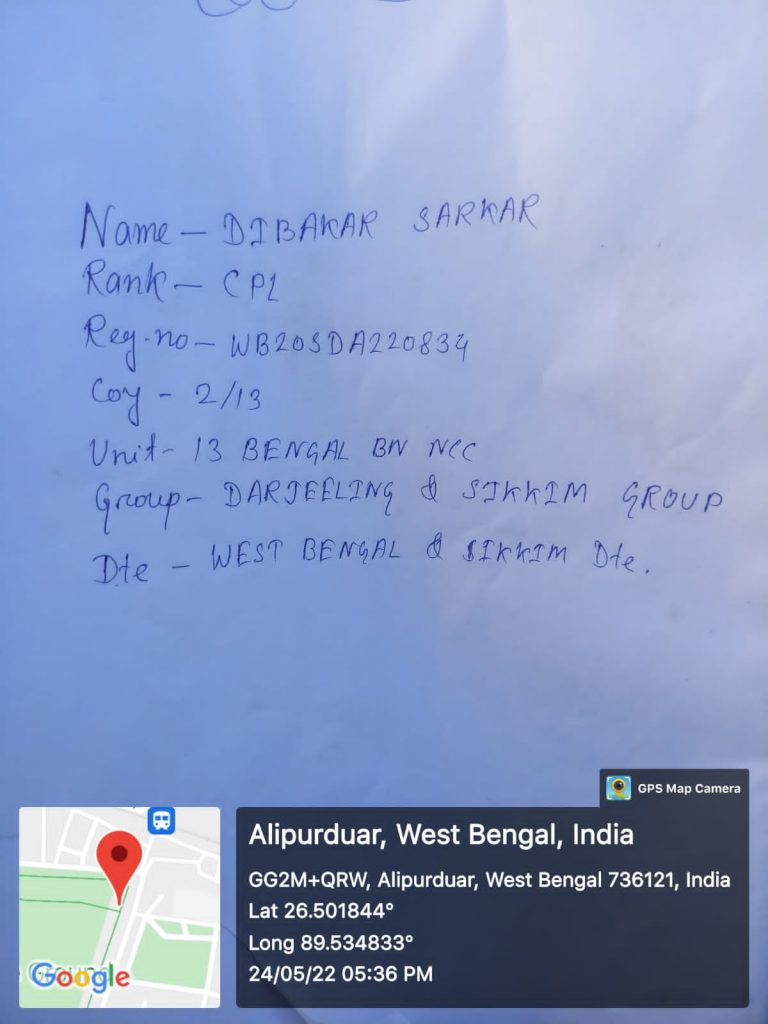 Name - DIBAKAR SARKAR
Rank - CPL
Reg.no - WB20SDA220834
Coy - 2/13
Unit - 13 BENGAL BN NCC
Group - DARJEELING & SIKKIM GROUP
Dte - WEST BENGAL & SIKKIM Dte.
GPS Map Camera
Alipurduar, West Bengal, India
GG2M+QRW, Alipurduar, West Bengal 736121, India
Lat 26.501844°
Long 89.534833°
24/05/22 05:36 PM
Google